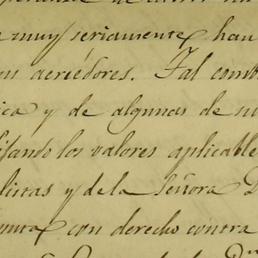 muy seriamente han
acreédores. Tal comb
ica y de algunas de nu
los valores aplicable
listas y de la Señora D
con derecho contra